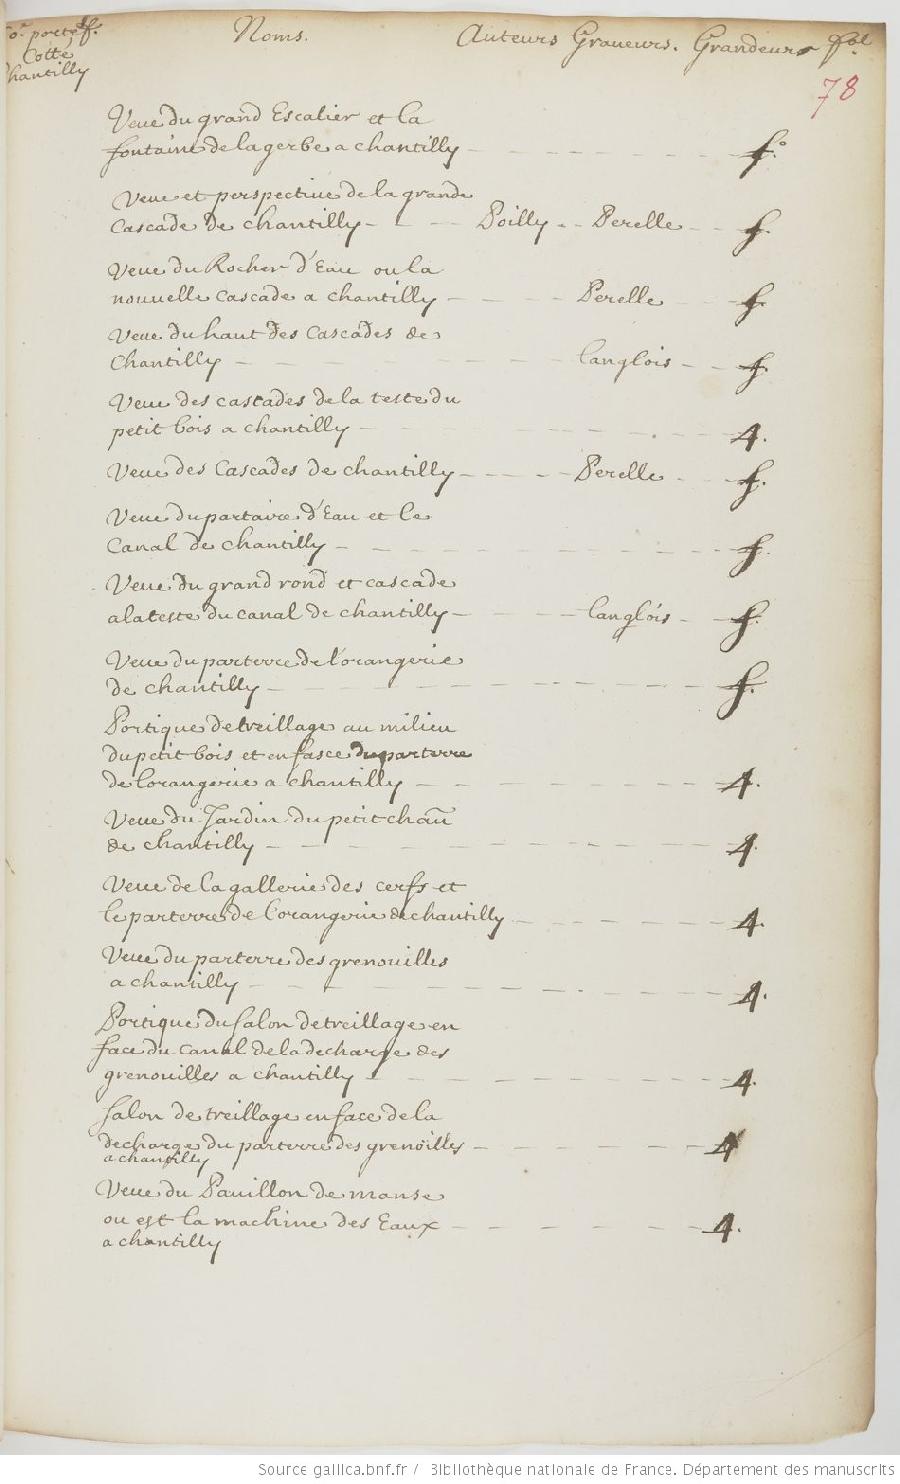 portef. Noms. Auteurs Graveurs. Grandeurs fol
Cotte
Chantilly
78
Veue du grand Escalier et la
fontaine de la gerbe a chantilly - - - - - fo.
Veue et perspective de la grande
Cascade de chantilly - - - Poilly - - Perelle - - f.
Veue du Rocher d'Eau ou la
nouvelle Cascade a chantilly - - - Perelle - - f.
Veue du haut des Cascades de
Chantilly - - - - langlois - - f.
Veue des cascades de la teste du
petit bois a chantilly - - - - 4.
Veue des Cascades de chantilly - - - Perelle - f.
Veue du partaire d'Eau et le
Canal de chantilly - - - - f.
Veue du grand rond et cascade
a la teste du canal de chantilly - - - langlois - f.
Veue du parterre de l'orangerie
de chantilly - - - - f.
Portique de treillage au milieu
du petit bois et en fasce du parterre
de lorangerie a chantilly - - - - 4.
Veue du Jardin du petit chãu
de chantilly - - - - 4.
Veue de la gallerie des cerfs et
le parterre de lorangerie de chantilly - - - - 4.
Veue du parterre des grenouilles
a chantilly - - - - 4.
Portique du salon de treillage en
face du canal de la decharge des
grenouilles a chantilly - - - - 4.
salon de treillage en face de la
decharge du parterre des grenoilles - - - - 4
a chantilly
Veue du Pavillon de manse
ou est la machine des Eaux - - - - 4.
a chantilly
Source gallica.bnf.fr / Bibliothèque nationale de France. Département des manuscrits